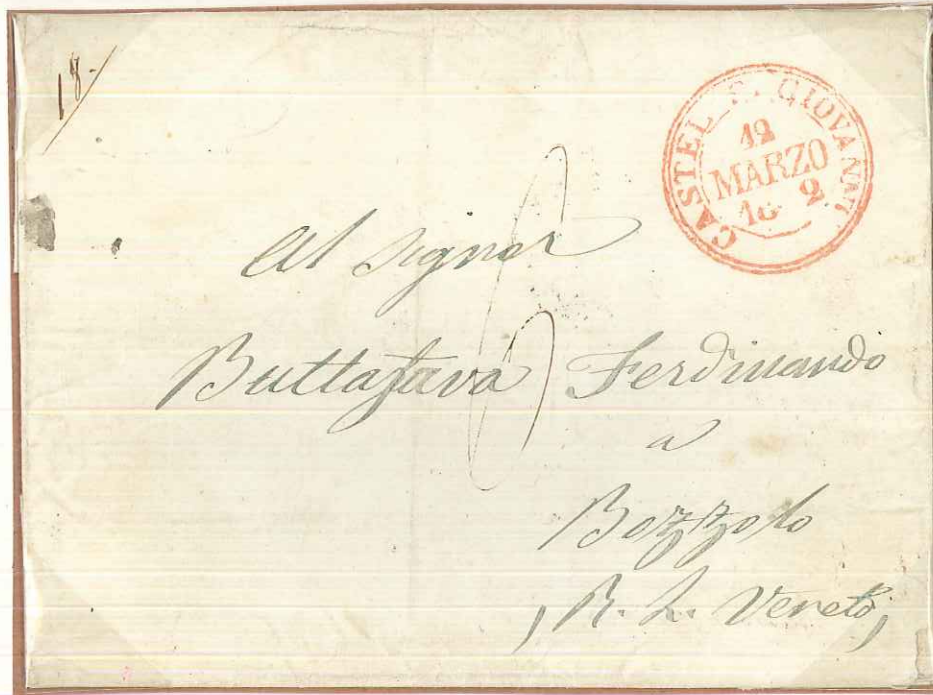 18
CASTEL S. GIOVANNI
12
MARZO
18 2
6
Al Signor
Buttafava Ferdinando
a
Bozzolo
(R. L. Veneto)